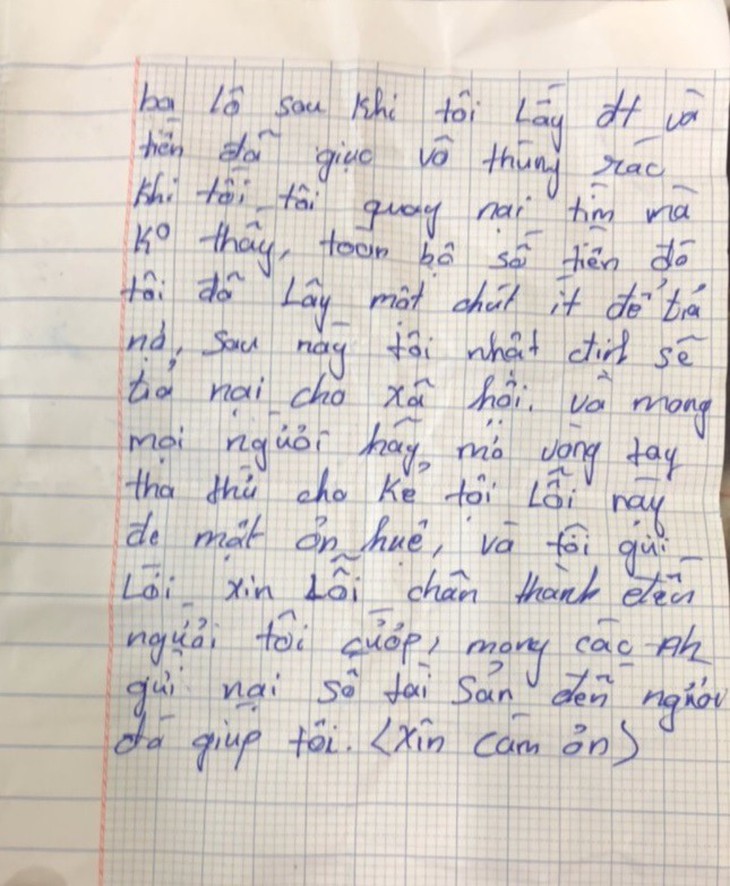 ba lô sau khi tôi Lấy đt và
tiền đã giục vô thùng rác
khi tối tôi quay nại tìm mà
Ko thấy, toàn bộ số tiền đó
tôi đã Lấy một chút ít để trả
nợ, sau này tôi nhất định sẽ
trả nại cho xã hội. và mong
mọi người hãy mở vòng tay
tha thứ cho kẻ tội Lỗi này
de mất ơn huệ, và tôi gửi
Lời xin Lỗi chân thành đến
người tôi cướp, mong các Ah
gửi nại số tài sản đến người
đó giúp tôi. <xin cảm ơn>